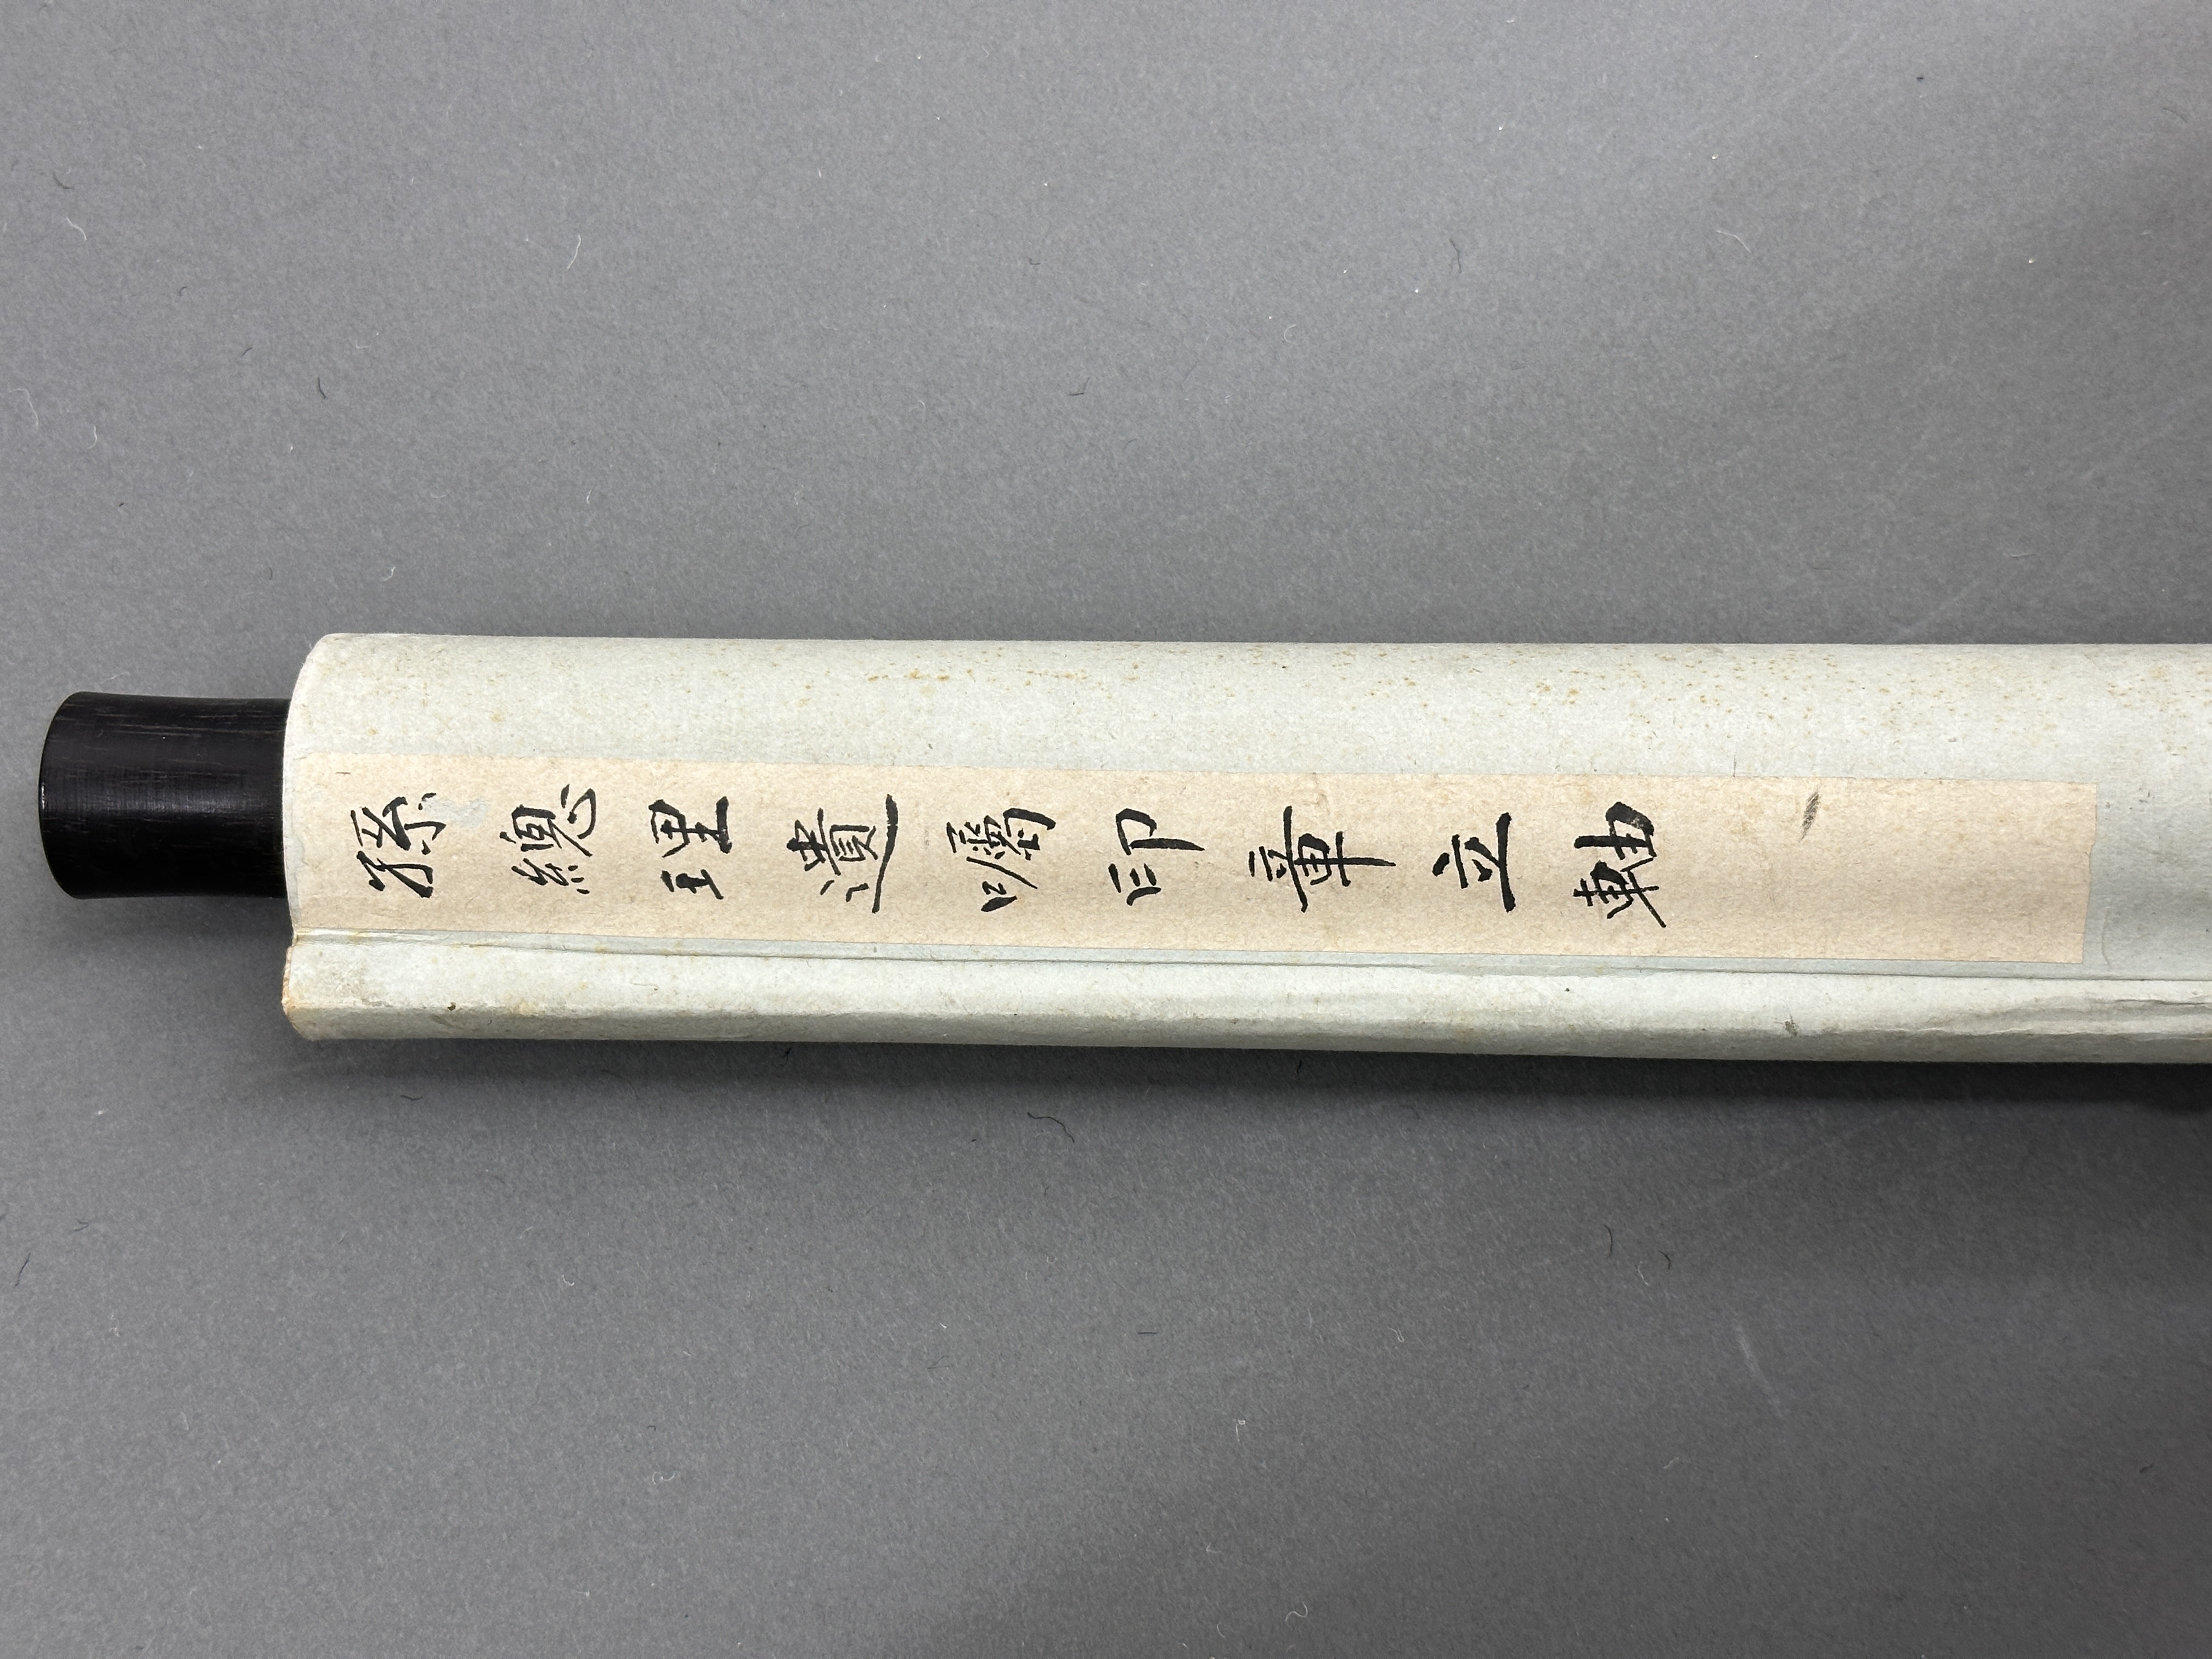 孫總理遺囑印章立軸